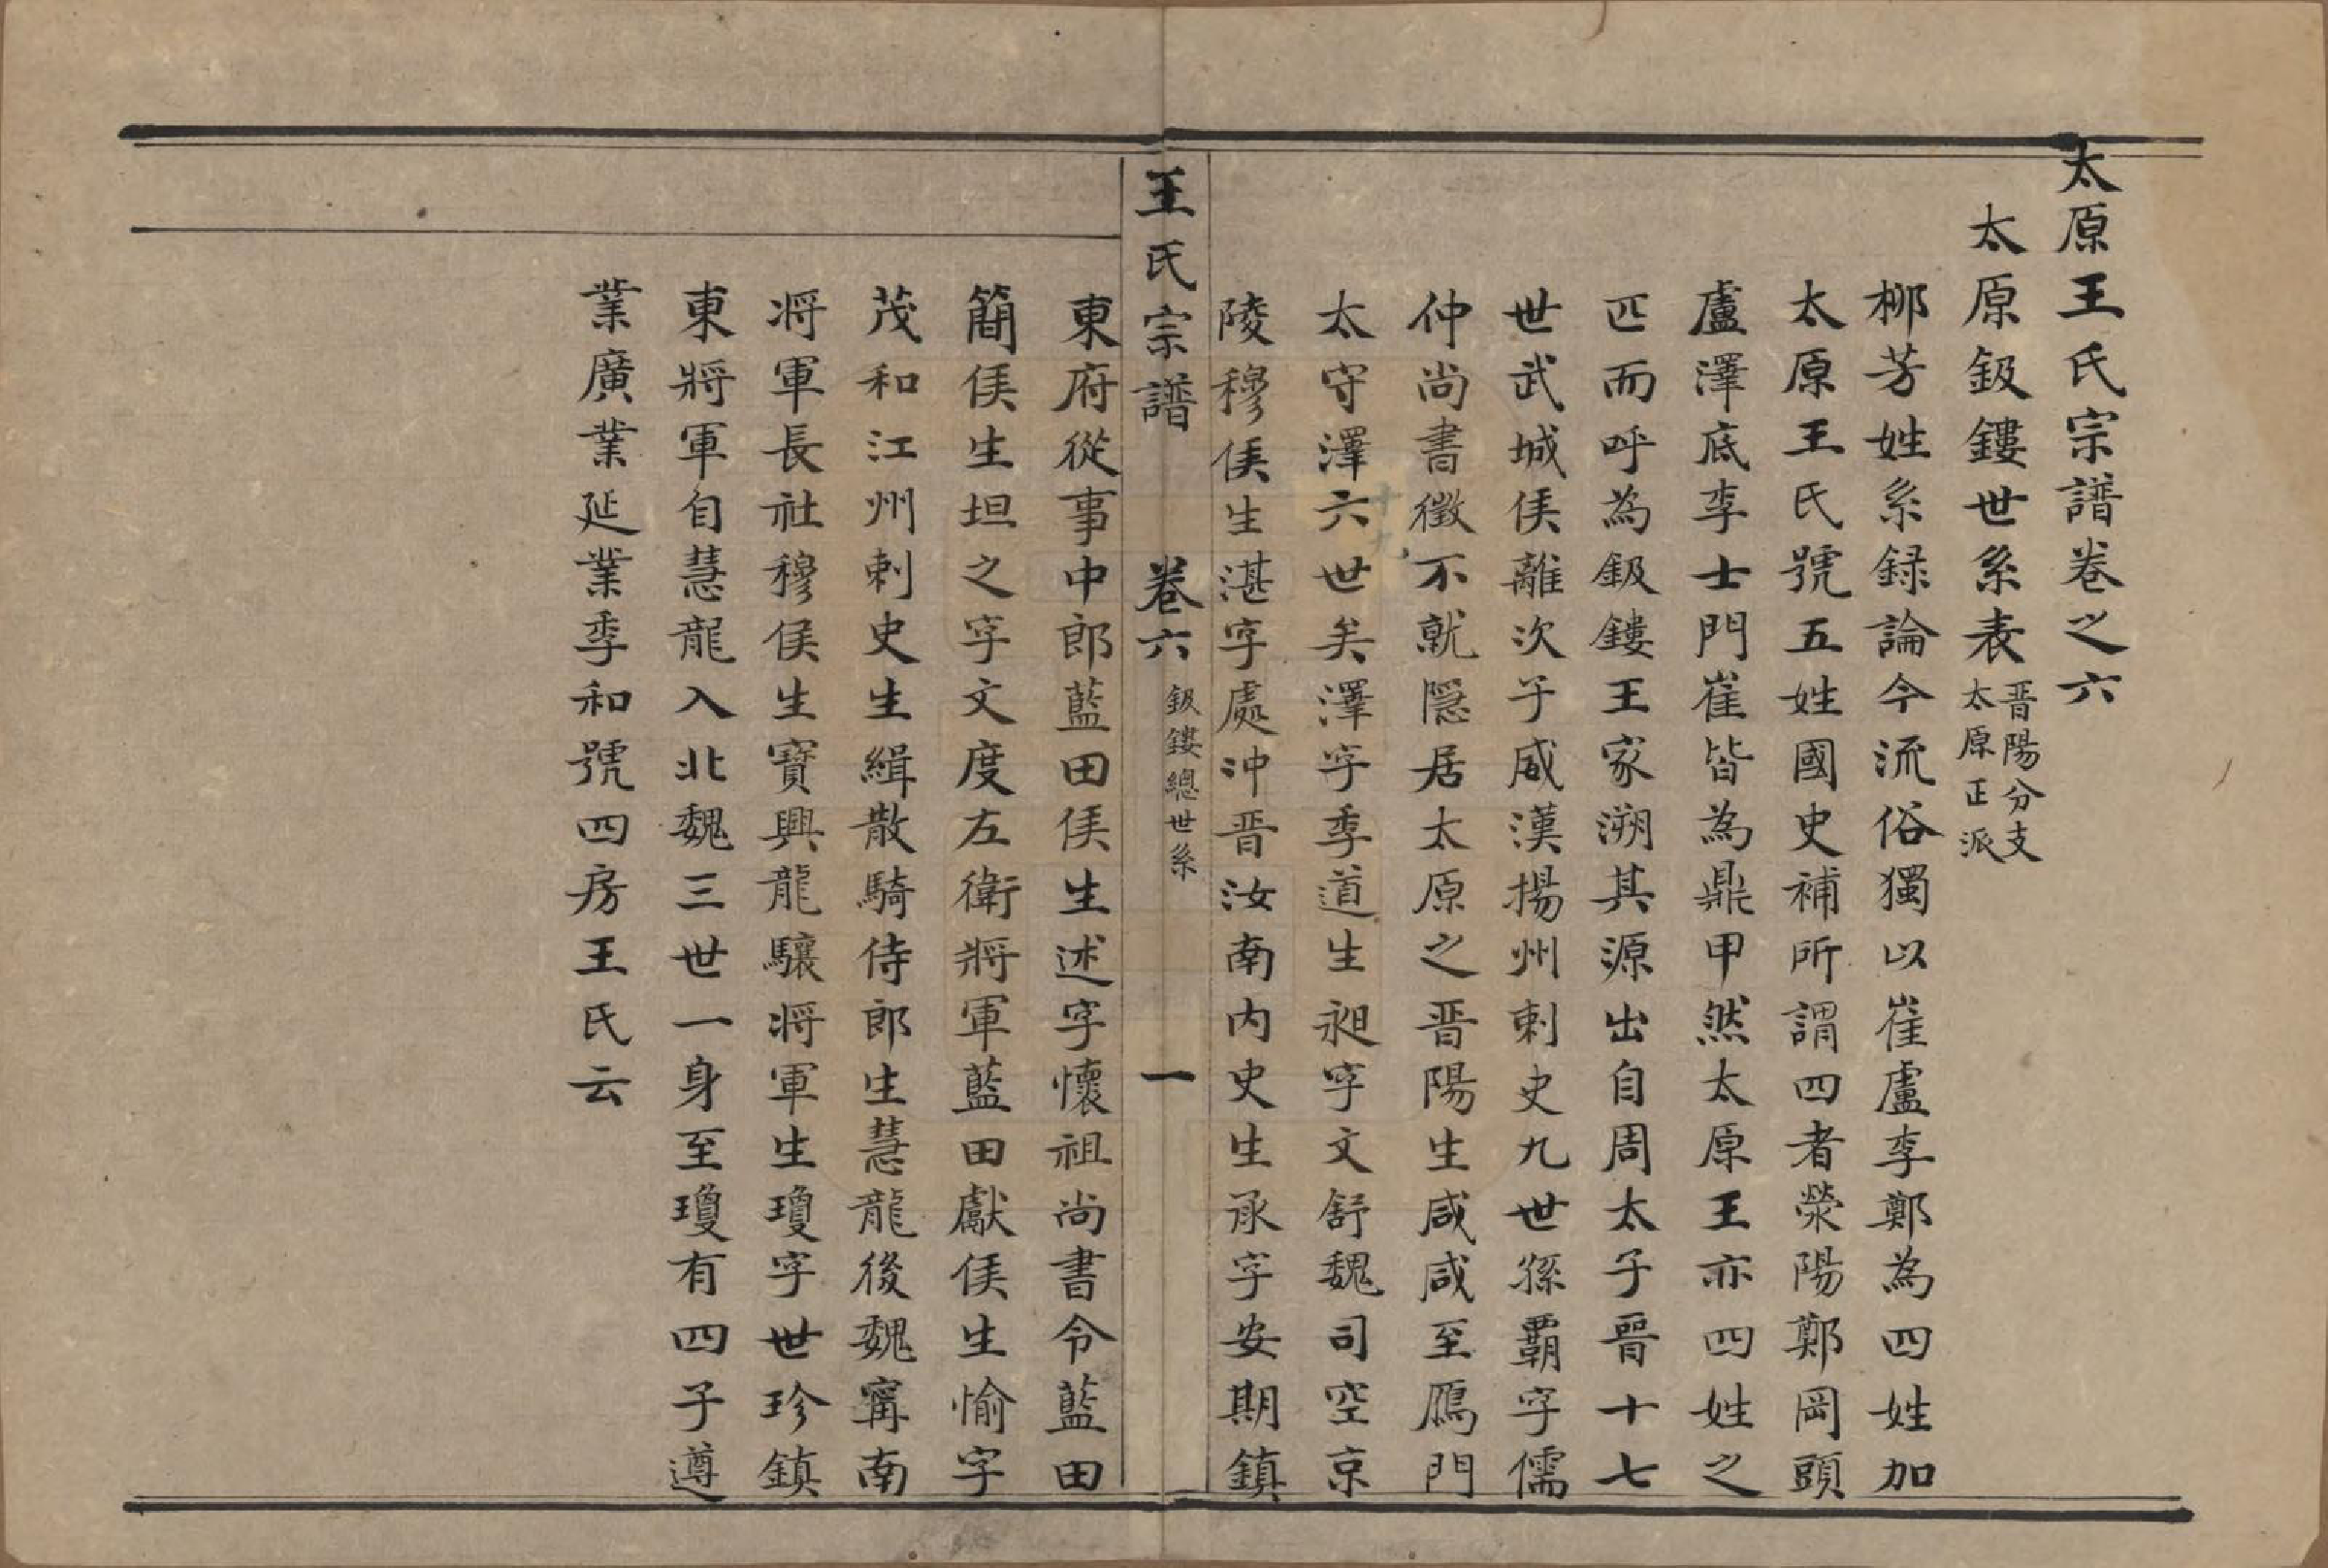 太原王氏宗譜卷之六
太原鈒鏤世系表
晋陽分支
太原正派
栁芳姓系録論今流俗獨以崔盧李鄭為四姓加
太原王氏號五姓國史補所謂四者滎陽鄭岡頭
盧澤底李士門崔皆為鼎甲然太原王亦四姓之
匹而呼為鈒鏤王家溯其源出自周太子晉十七
世武城侯離次子威漢揚州刺史九世孫覇字儒
仲尚書徵不就隱居太原之晋陽生咸咸至鴈門
太守澤六世矣澤字季道生昶字文舒魏司空京
陵穆侯生湛字處沖晋汝南内史生承字安期鎮
王氏宗譜
卷六
鈒鏤總世系
一
東府從事中郎藍田侯生述字懷祖尚書令藍田
簡侯生坦之字文度左衛將軍藍田獻侯生愉字
茂和江州刺史生緝散騎侍郎生慧龍後魏甯南
将軍長社穆侯生寳興龍驤將軍生瓊字世珍鎮
東將軍自慧龍入北魏三世一身至瓊有四子遵
業廣業延業季和號四房王氏云
十九